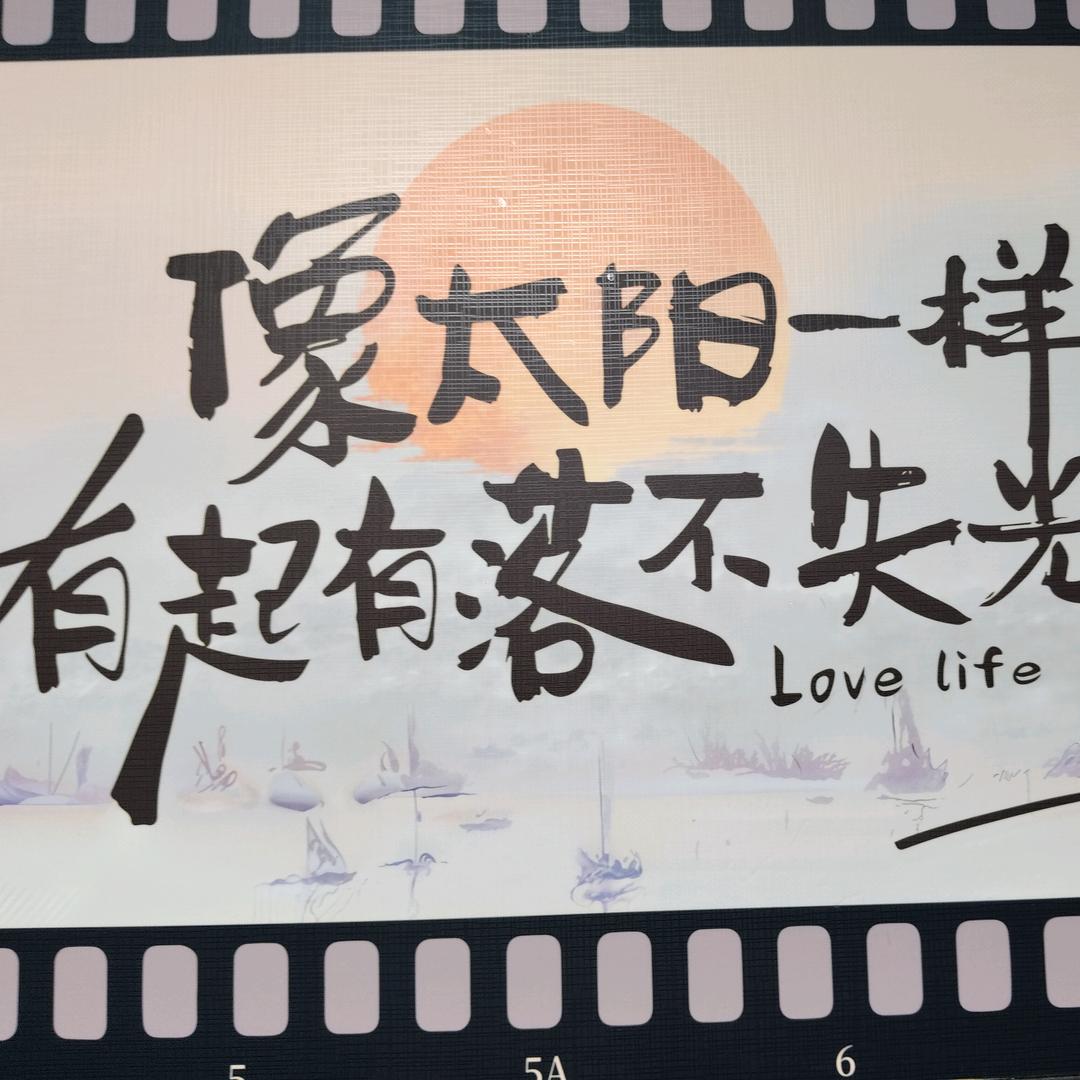 像太阳一样
有起有落不失光
Love life
5 5A 6